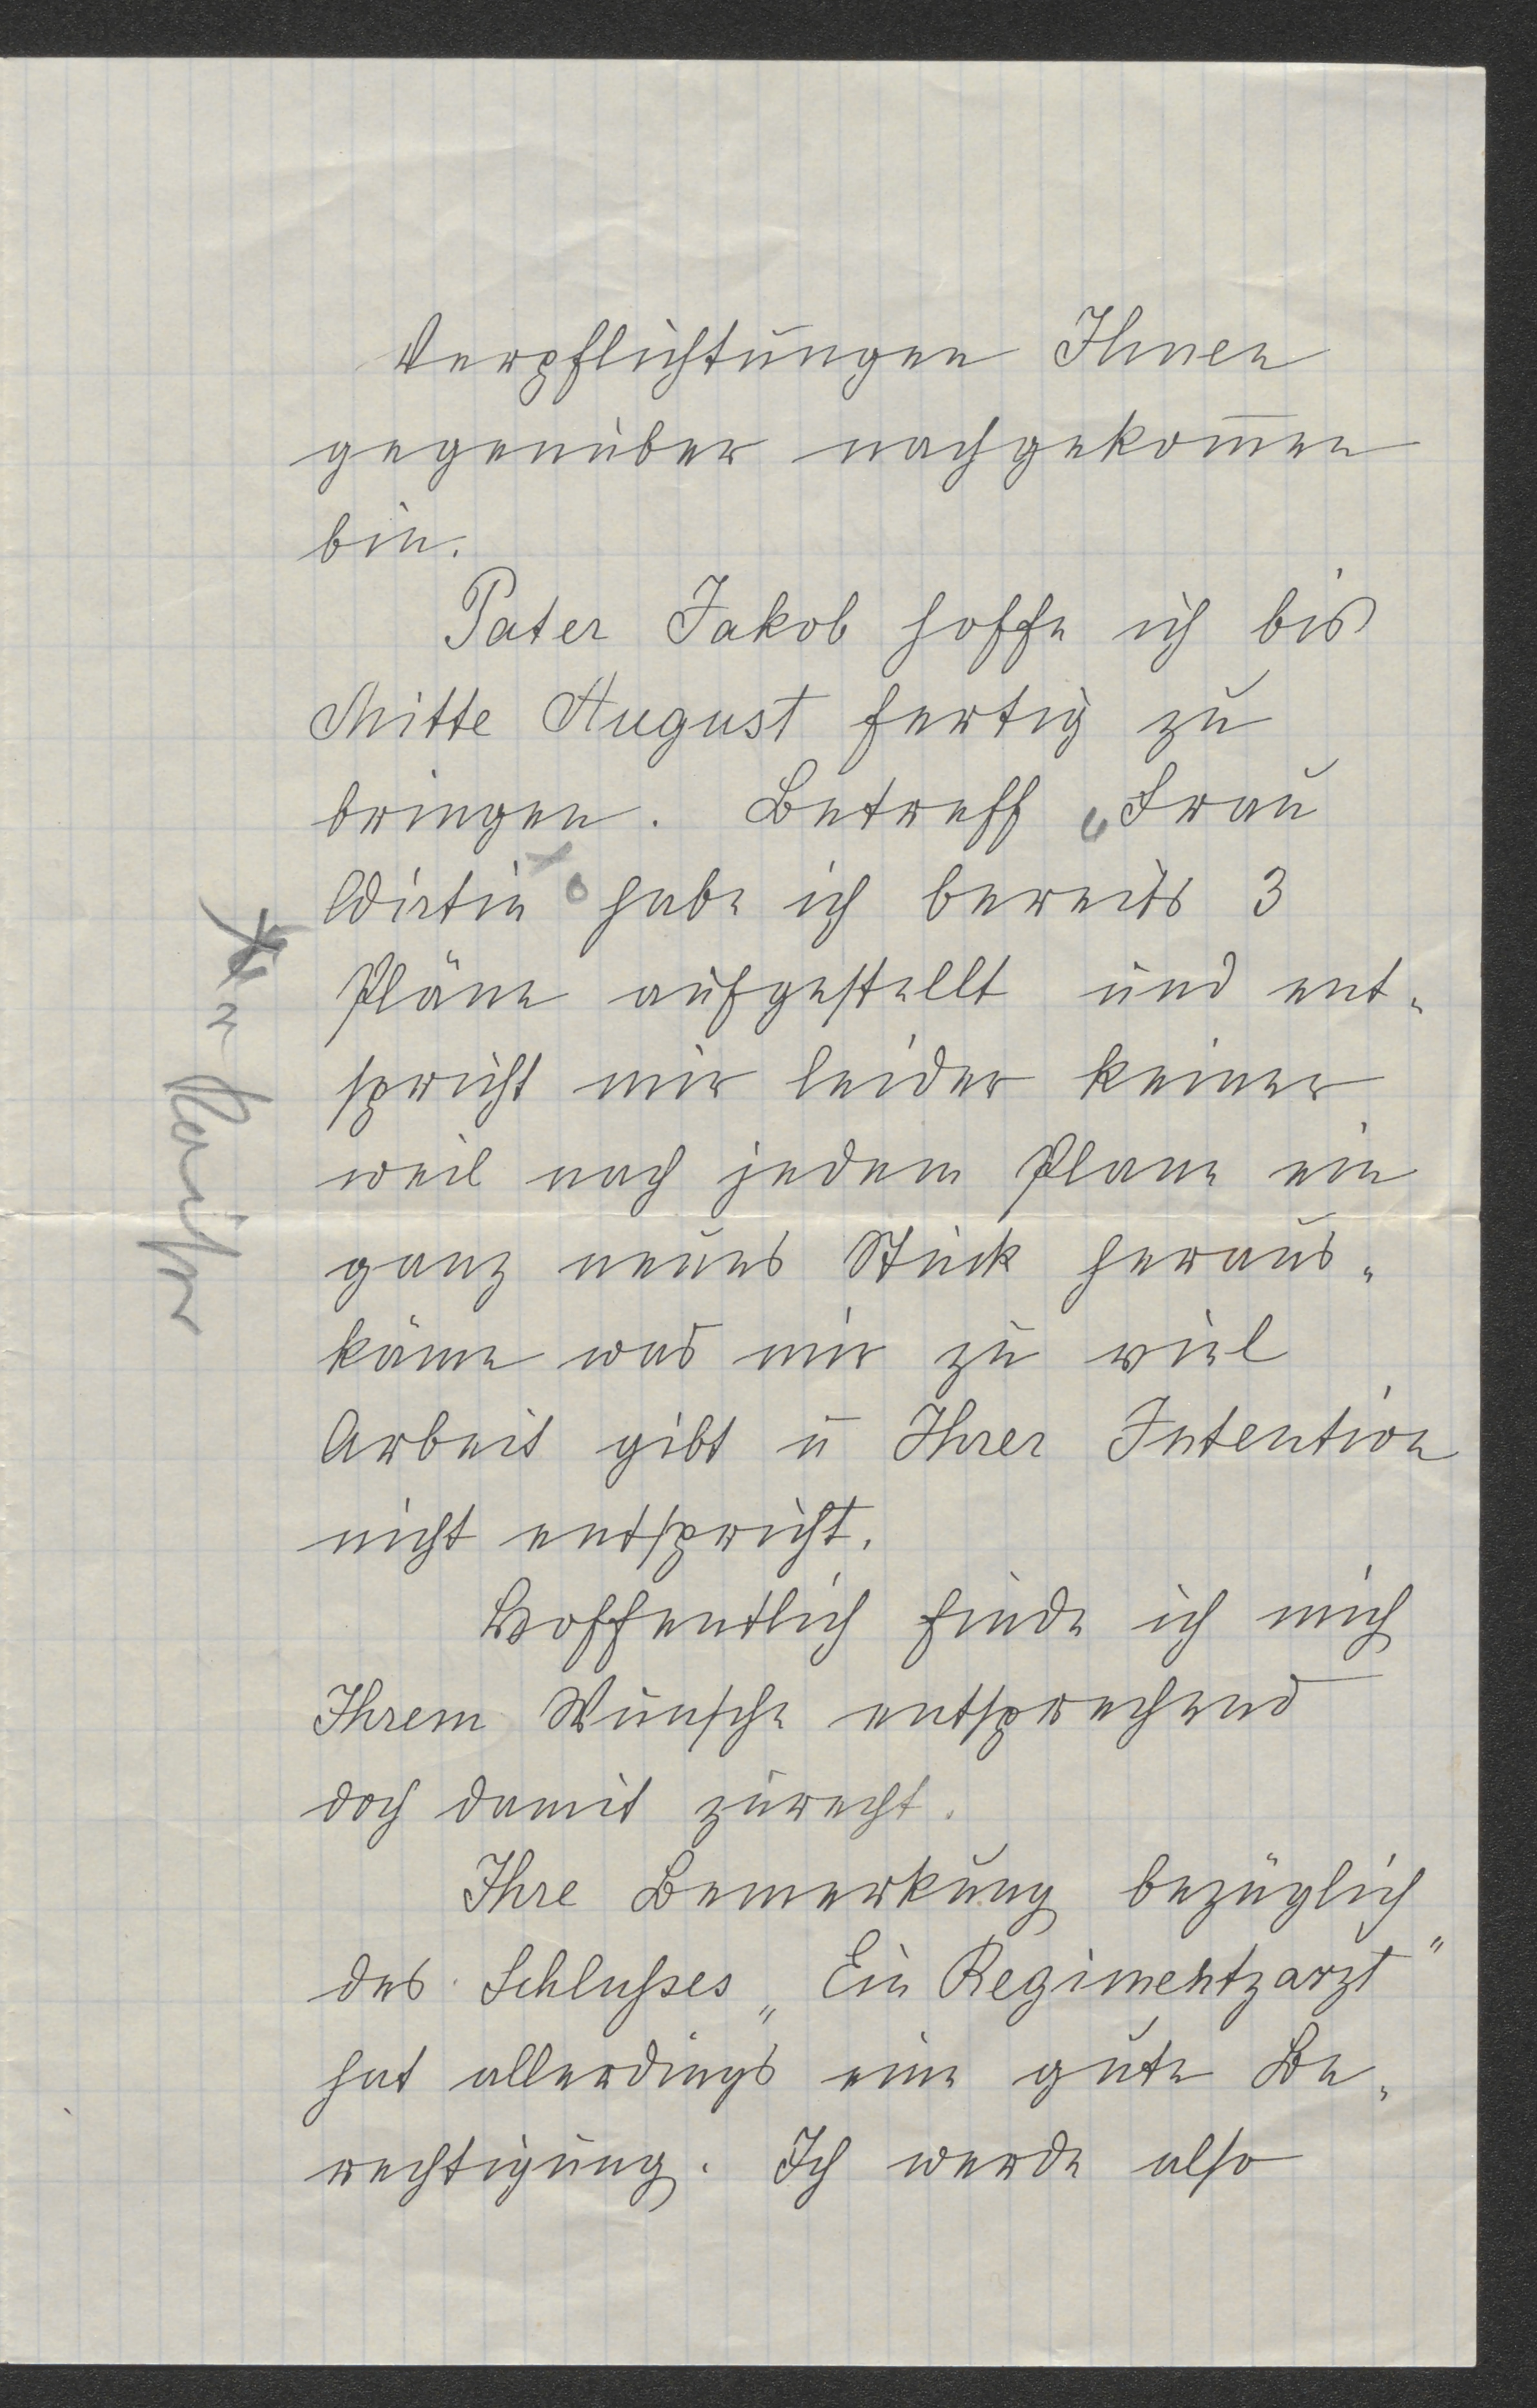 Verpflichtungen Ihnen
gegenüber nachgekom̅en
bin.
Pater Jakob hoffe ich bis
Mitte August fertig zu
bringen. Betreff „Frau
Wirtin“ habe ich bereits 3
Pläne aufgestellt und ent-
spricht mir leider keiner
weil nach jedem Plane ein
ganz neues Stück heraus-
käme was mir zu viel
Arbeit gibt u̅ Ihrer Intention
nicht entspricht.
Hoffentlich finde ich mich
Ihrem Wunsche entsprechend
doch damit zurecht.
Ihre Bemerkung bezüglich
des Schlußses „Ein Regimentzarzt“
hat allerdings eine gute Be-
rechtigung. Ich werde also